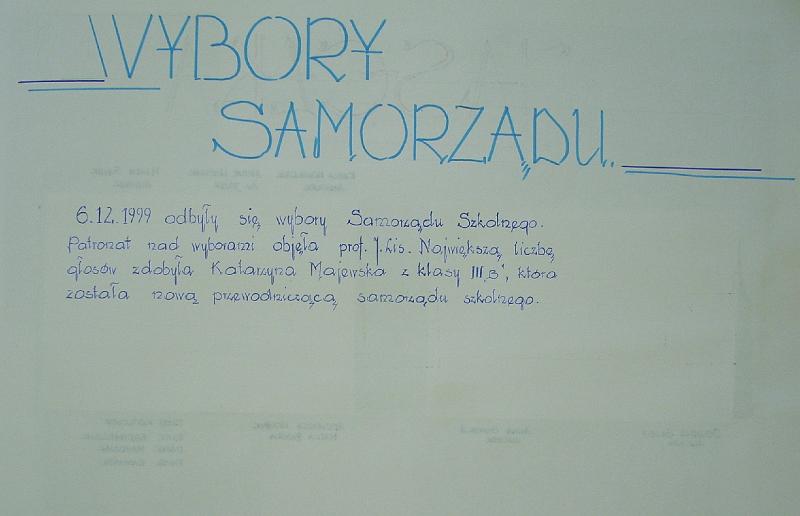 WYBORY
SAMORZĄDU.
6.12.1999 odbyły się wybory Samorządu Szkolnego.
Patronat nad wyborami objęła prof. J. Lis. Największą liczbę
głosów zdobyła Katarzyna Majewska z klasy III „B", która
została nową przewodniczącą samorządu szkolnego.